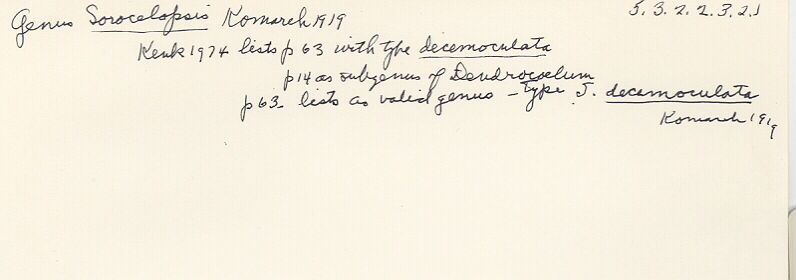 Genus Sorocelopsis Komarek 1919
5.3.2.2.3.2.1
Kenk 1974 lists p 63 with type decemoculata
p14 as subgenus of Dendrocoelum
p63 lists as valid genus - type S. decemoculata
Komarek 1919